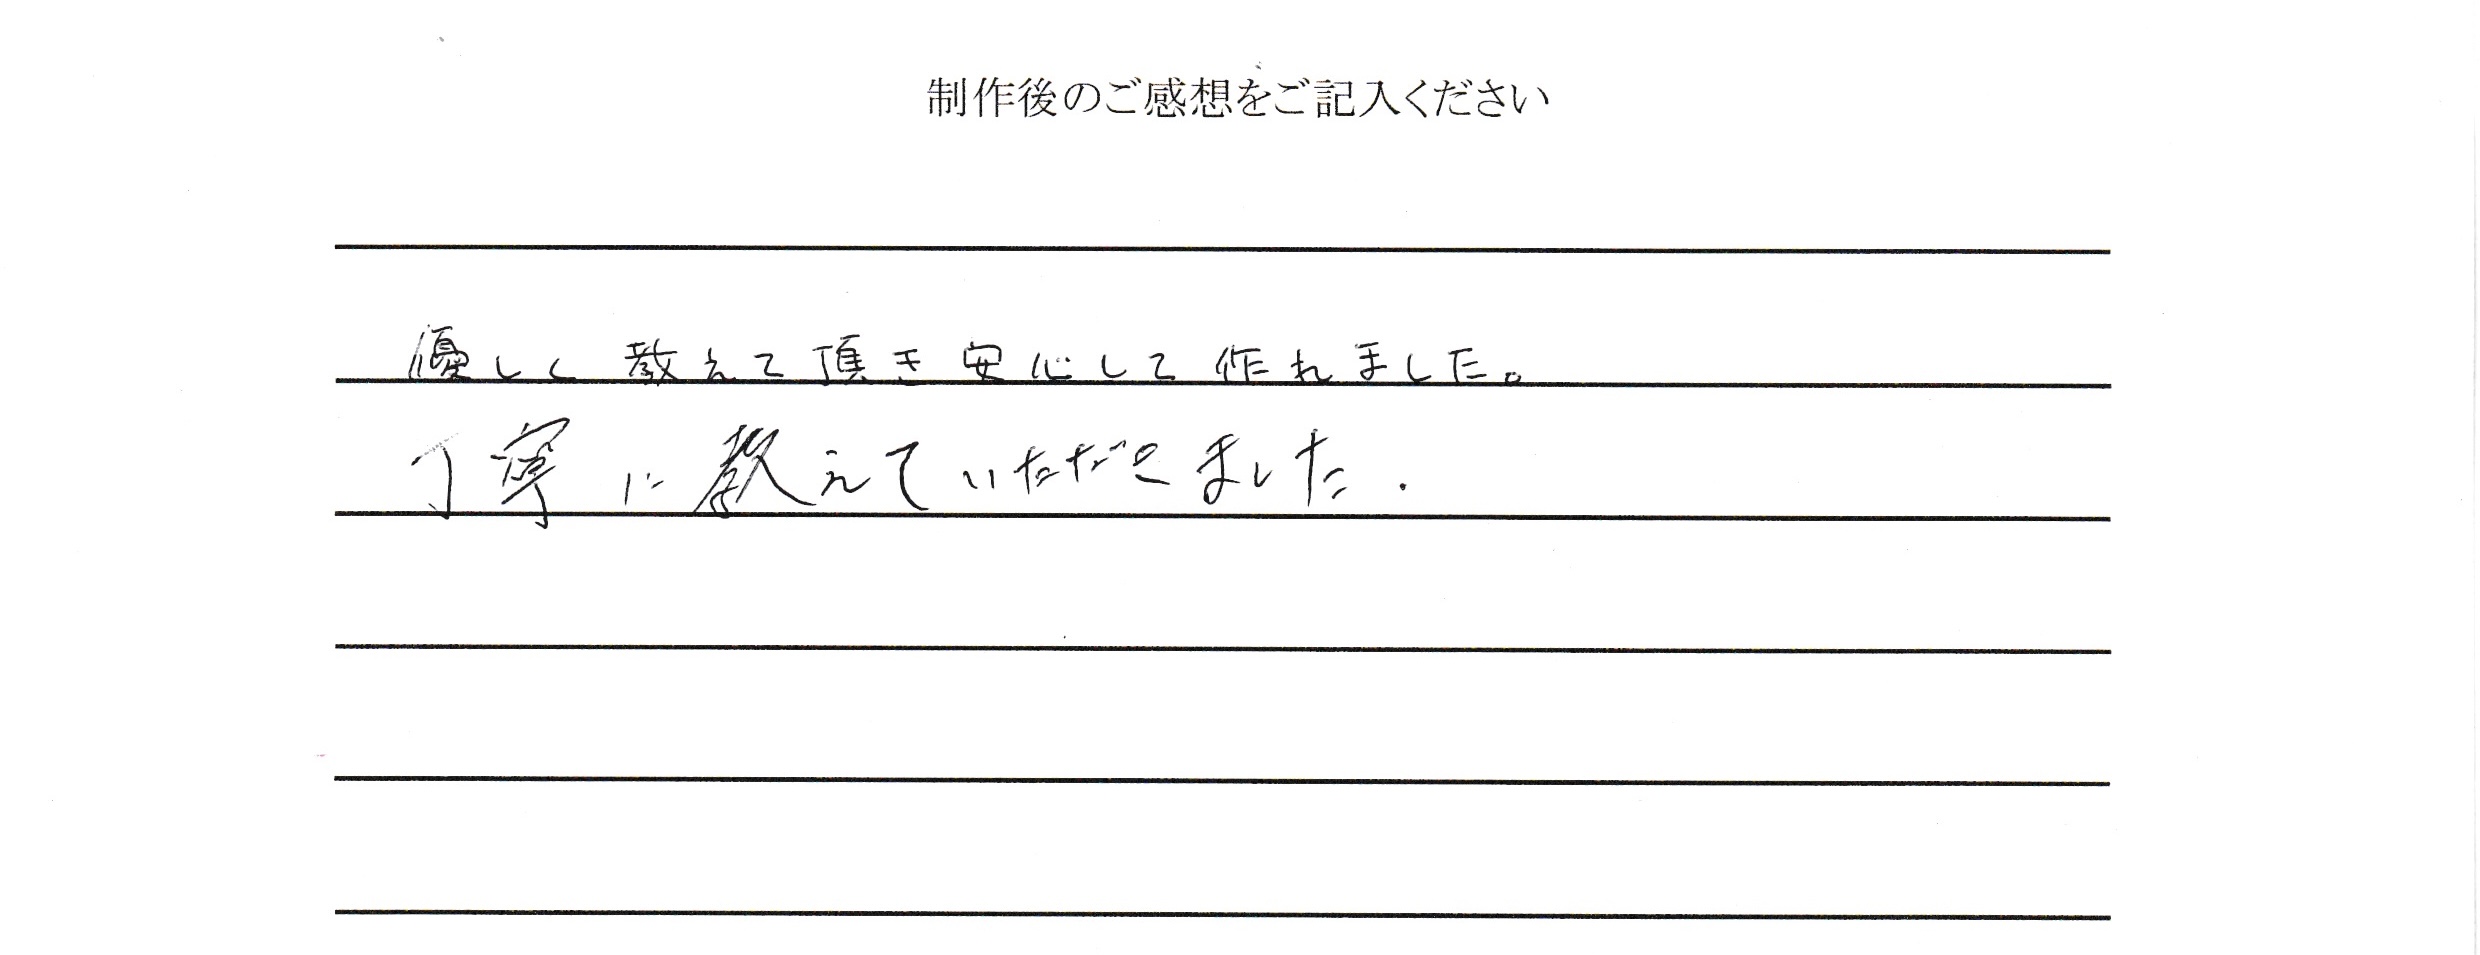 制作後のご感想をご記入ください
優しく教えて頂き安心して作れました。
丁寧に教えていただきました.